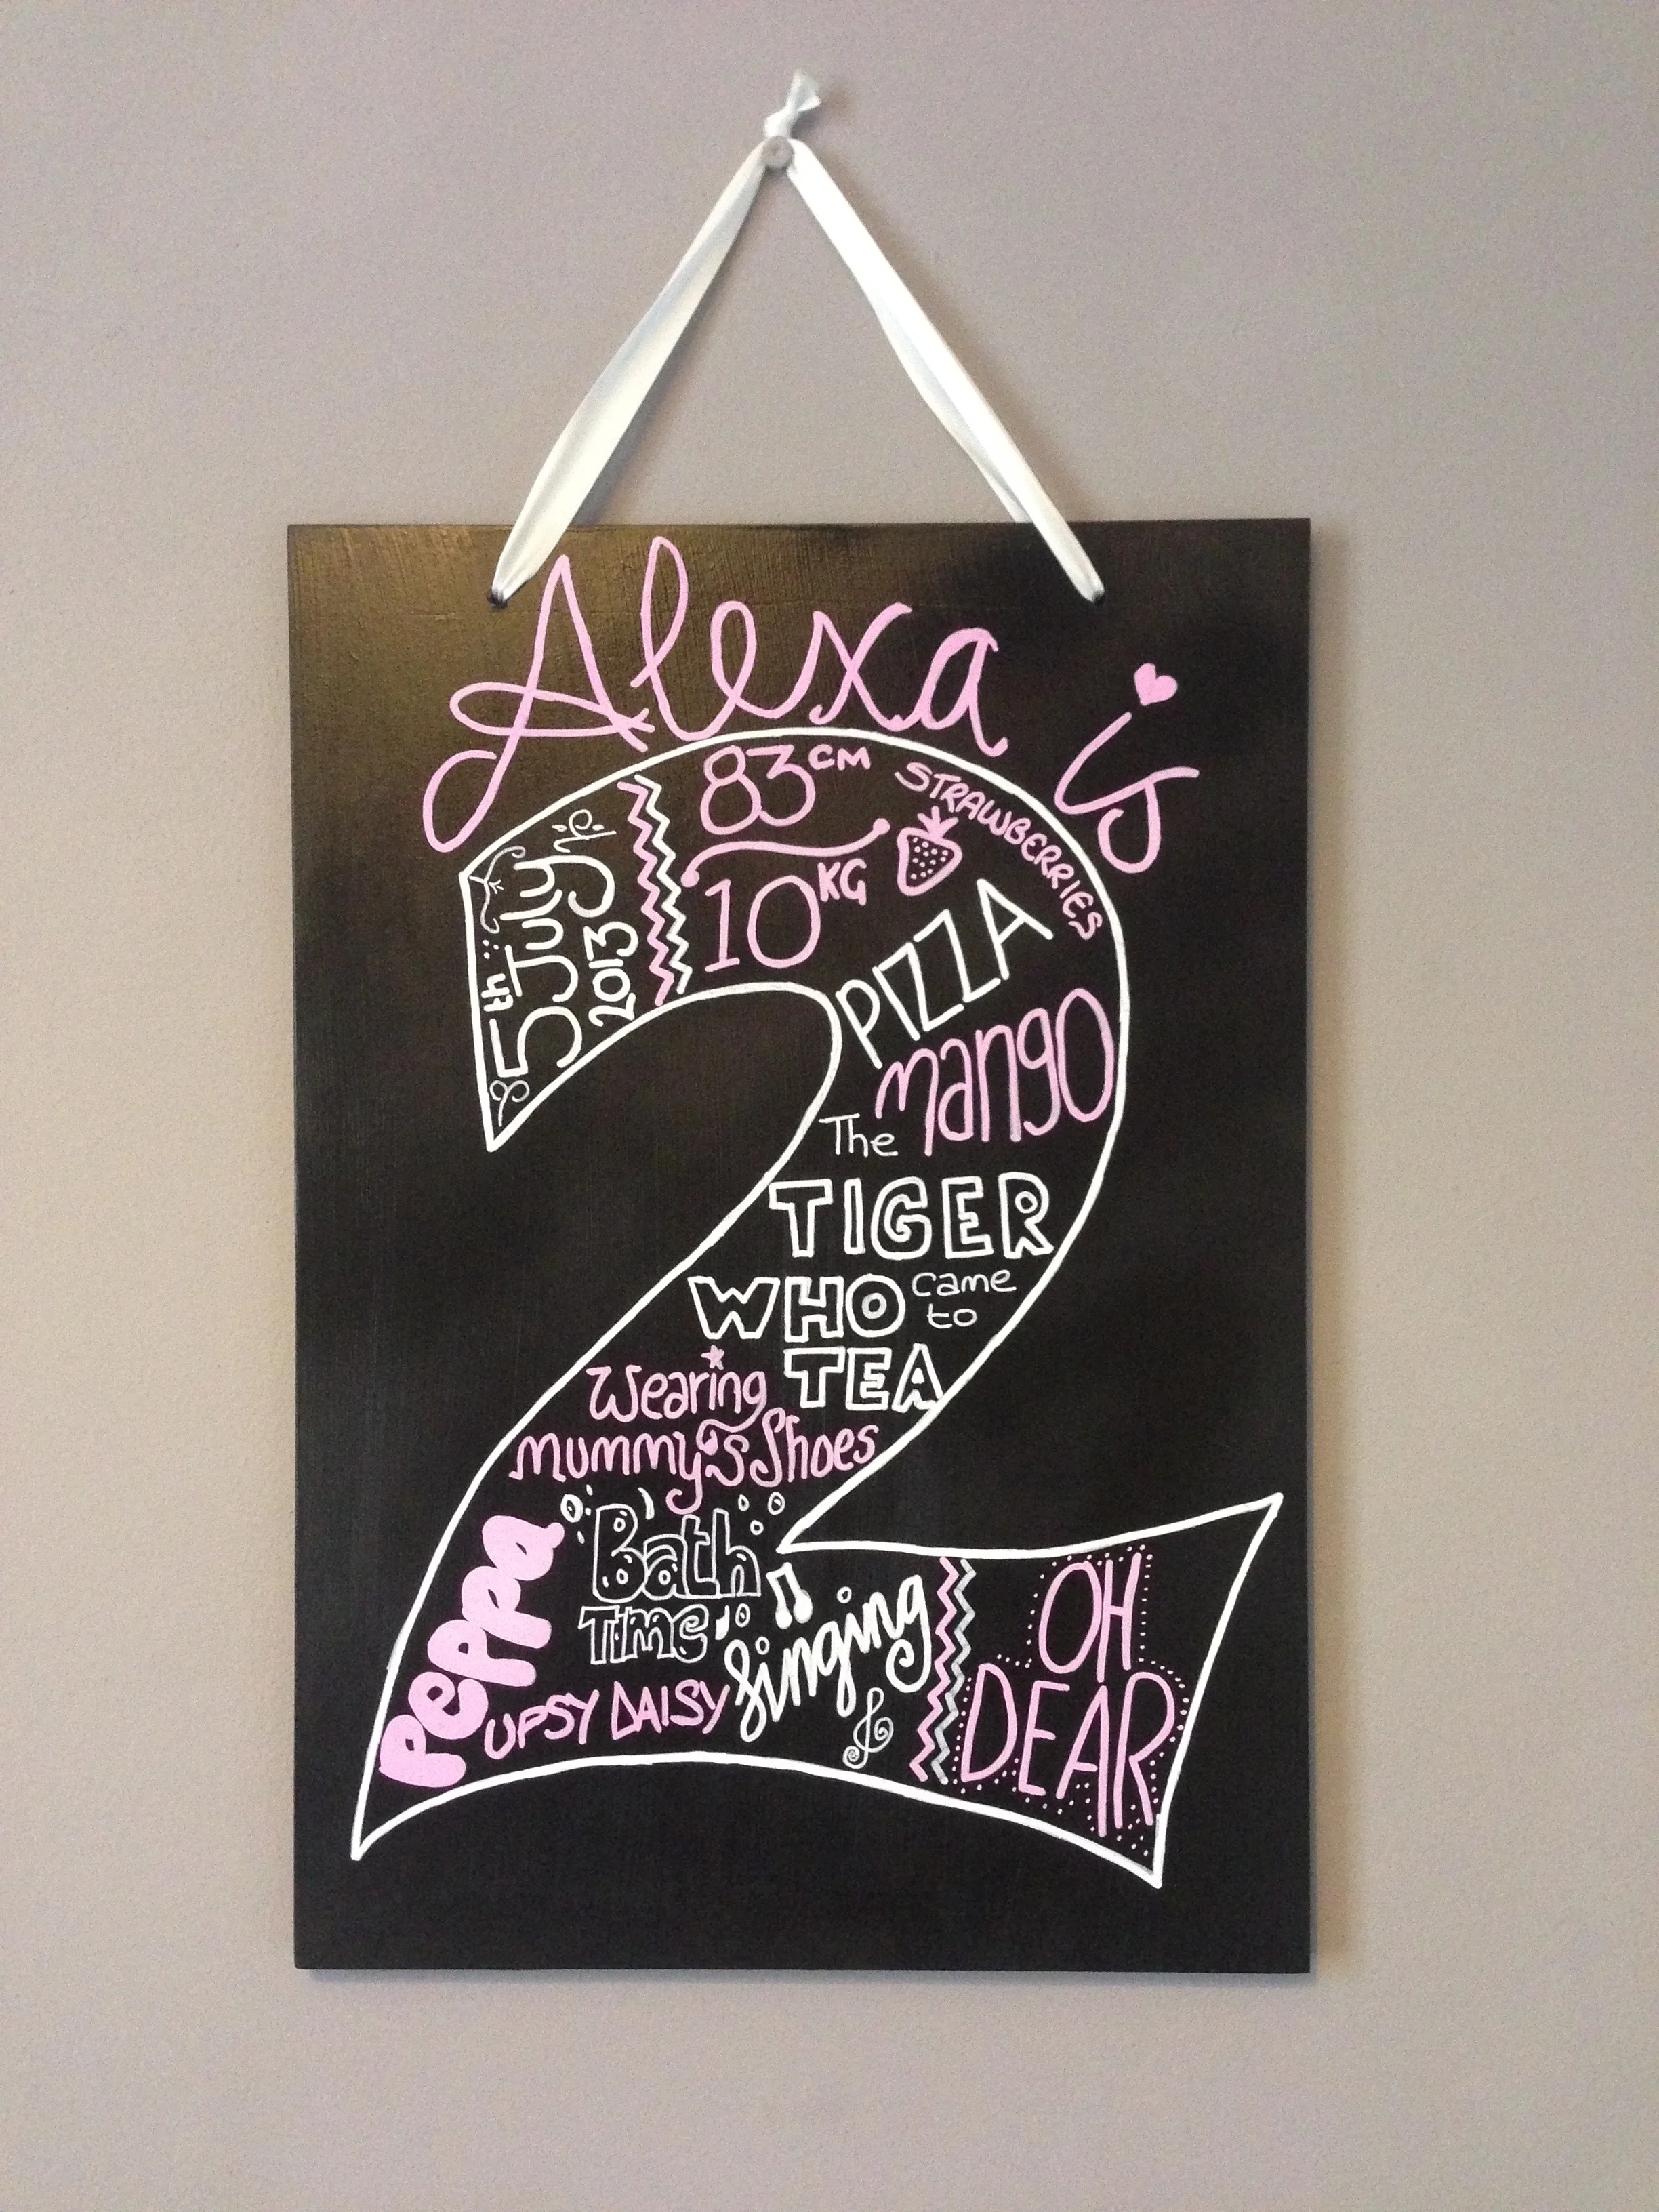 Alexa is
5th July
2013
83 CM
10 KG
STRAWBERRIES
PIZZA
mango
The
TIGER
WHO came to
TEA
Wearing
mummy's Shoes
Peppa
Bath
Time
UPSY DAISY
singing
OH
DEAR